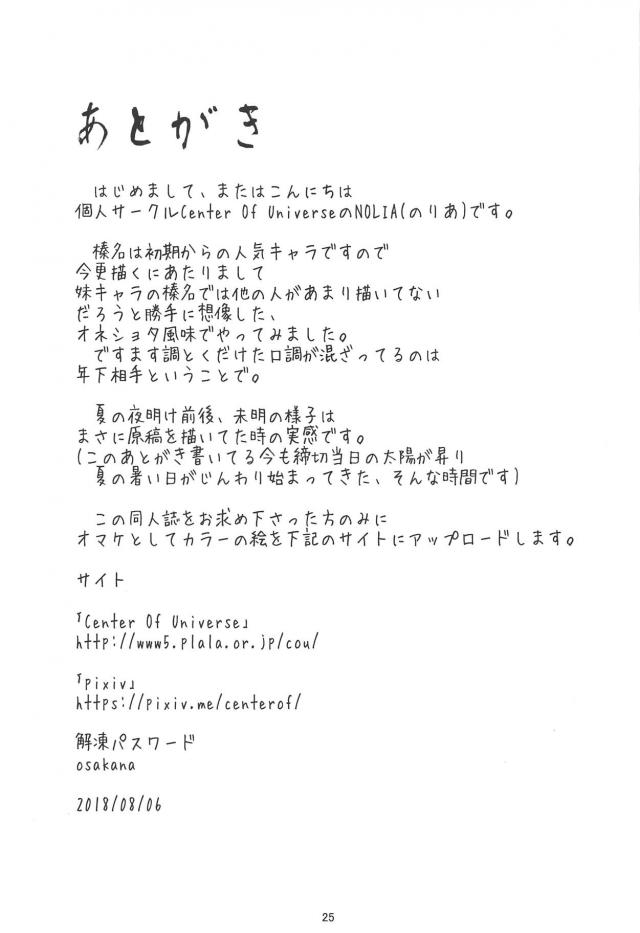 あとがき
はじめまして、またはこんにちは
個人サークルCenter Of UniverseのNOLIA(のりあ)です。
榛名は初期からの人気キャラですので
今更描くにあたりまして
妹キャラの榛名では他の人があまり描いてない
だろうと勝手に想像した、
オネショタ風味でやってみました。
ですます調とくだけた口調が混ざってるのは
年下相手ということで。
夏の夜明け前後、未明の様子は
まさに原稿を描いてた時の実感です。
(このあとがき書いてる今も締切当日の太陽が昇り
夏の暑い日がじんわり始まってきた、そんな時間です)
この同人誌をお求め下さった方のみに
オマケとしてカラーの絵を下記のサイトにアップロードします。
サイト
『Center Of Universe』
http://www5.plala.or.jp/cou/
『pixiv』
https://pixiv.me/centerof/
解凍パスワード
osakana
2018/08/06
25